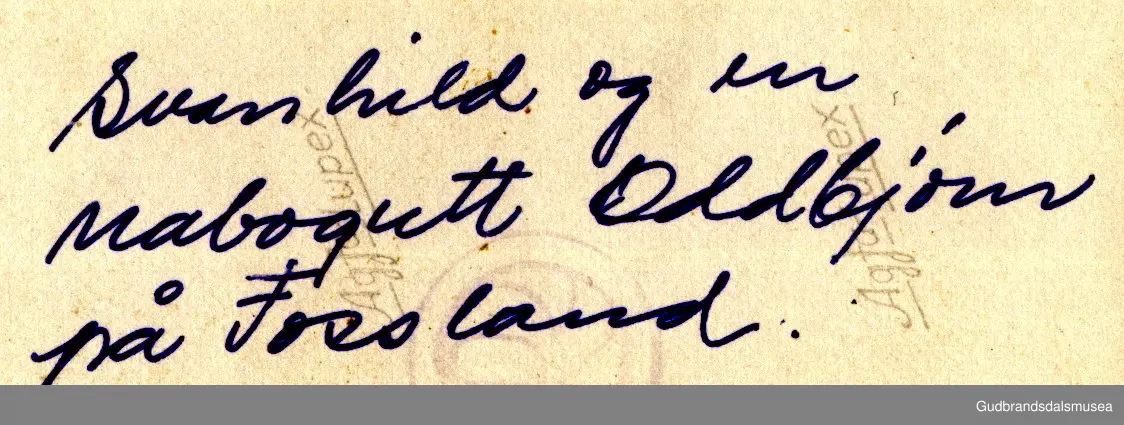 Svanhild og en
nabogutt Oddbjörn
på Fossland.
Agfa Lupex
Agfa Lupex
Gudbrandsdalsmusea